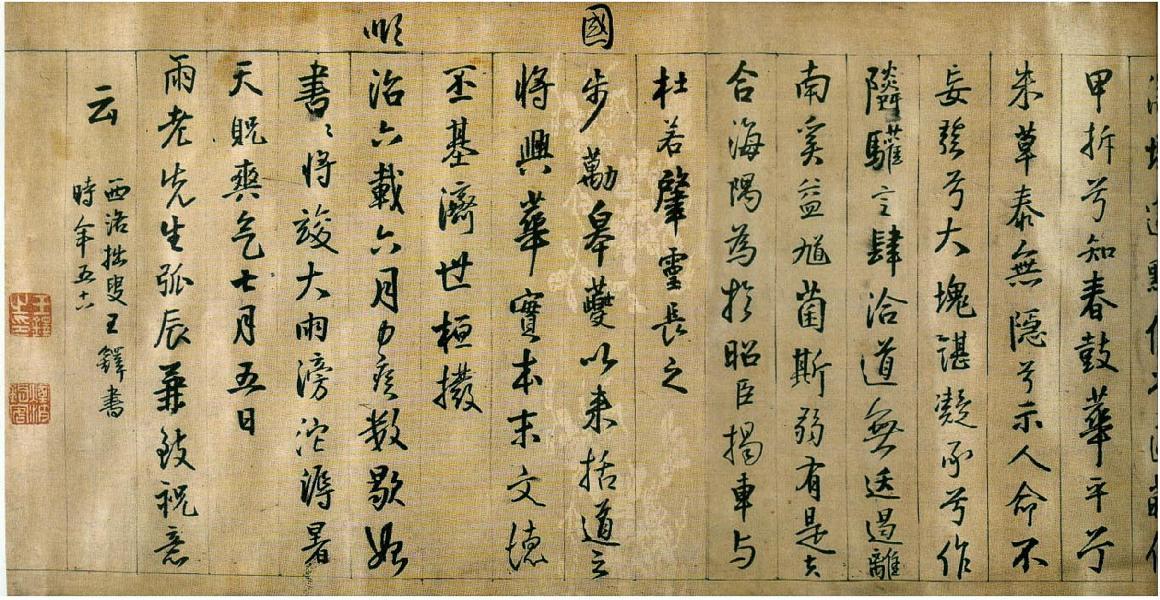 甲拆兮知春鼓華平兮
朱草泰無隱兮示人命不
妄發兮大塊諶凝承兮作
驩言肆洽道無遏離
南奚益馗菌斯弱有是夫
合海隅為於昭臣揭車与
杜若肇靈長之
國步勱皋夔以来括道之
將興華實本末文德
丕基濟世桓撥
順治六載六月力疾数歇始
書〻將竣大雨滂沱溽暑
天貺爽气七月五日
雨老先生弧辰兼致祝意
云
西洛拙叟王鐸書
時年五十八
王鐸之印